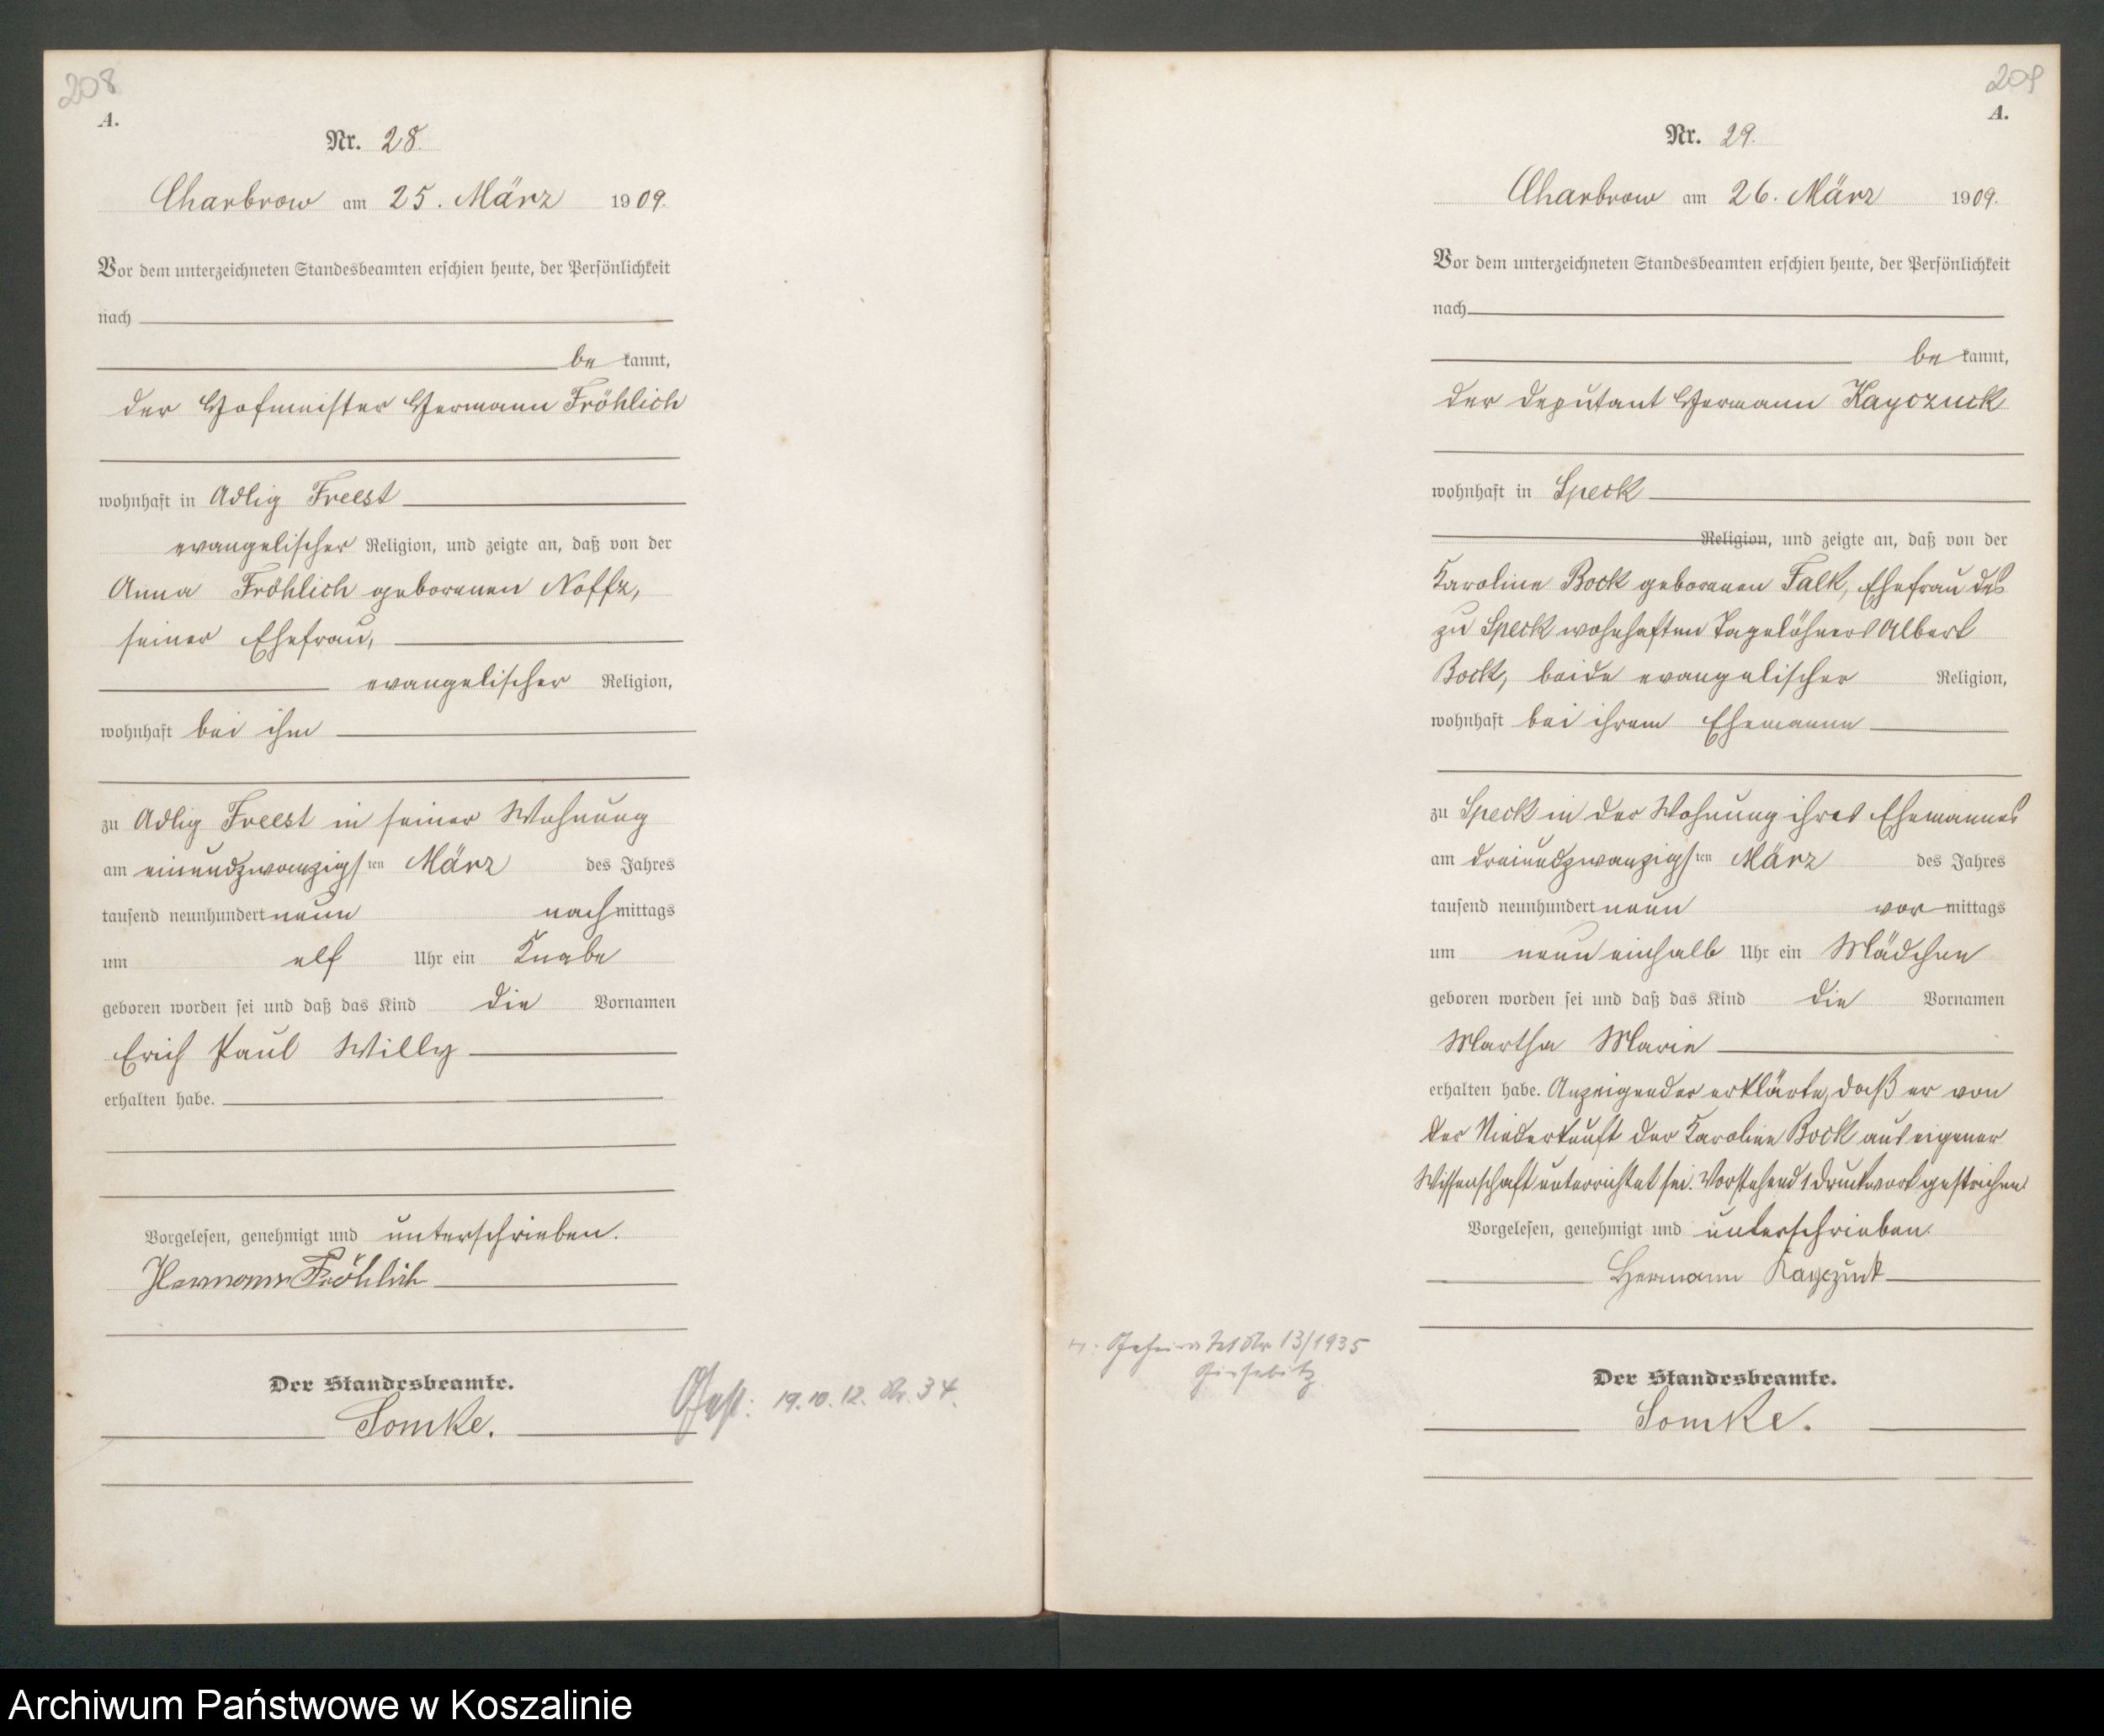 208
A.
Nr. 28.
Charbrow am 25. März 1909.
Vor dem unterzeichneten Standesbeamten erschien heute, der Persönlichkeit
nach
be kannt,
der Hofmeister Hermann Fröhlich
wohnhaft in Adlig Freest
evangelischer Religion, und zeigte an, daß von der
Anna Fröhlich geborenen Noffz,
seiner Ehefrau,
evangelischer Religion,
wohnhaft bei ihm
zu Adlig Freest in seiner Wohnung
am einundzwanzigsten März des Jahres
tausend neunhundert neun nachmittags
um elf Uhr ein Knabe
geboren worden sei und daß das Kind die Vornamen
Erich Paul Willy
erhalten habe.
Vorgelesen, genehmigt und unterschrieben.
Hermann Fröhlich
Der Standesbeamte.
Lomke.
Gest: 19.10.12. Nr. 34.
209
A.
Nr. 29.
Charbrow am 26. März 1909.
Vor dem unterzeichneten Standesbeamten erschien heute, der Persönlichkeit
nach
be kannt,
der Deputant Hermann Kayczuck
wohnhaft in Speck
Religion, und zeigte an, daß von der
Karoline Bock geborenen Falk, Ehefrau des
zu Speck wohnhaften Tagelöhners Albert
Bock, beide evangelischer Religion,
wohnhaft bei ihrem Ehemanne
zu Speck in der Wohnung ihres Ehemannes
am dreiundzwanzigsten März des Jahres
tausend neunhundert neun vormittags
um neun einhalb Uhr ein Mädchen
geboren worden sei und daß das Kind die Vornamen
Martha Marie
erhalten habe. Anzeigender erklärte, daß er von
der Niederkunft der Karoline Bock aus eigener
Wissenschaft unterrichtet sei. Vorstehend 1 Druckwort gestrichen.
Vorgelesen, genehmigt und unterschrieben.
Hermann Kayczuk
Geheiratet Nr 13/1935
Giesebitz
Der Standesbeamte.
Lomke.
Archiwum Państwowe w Koszalinie